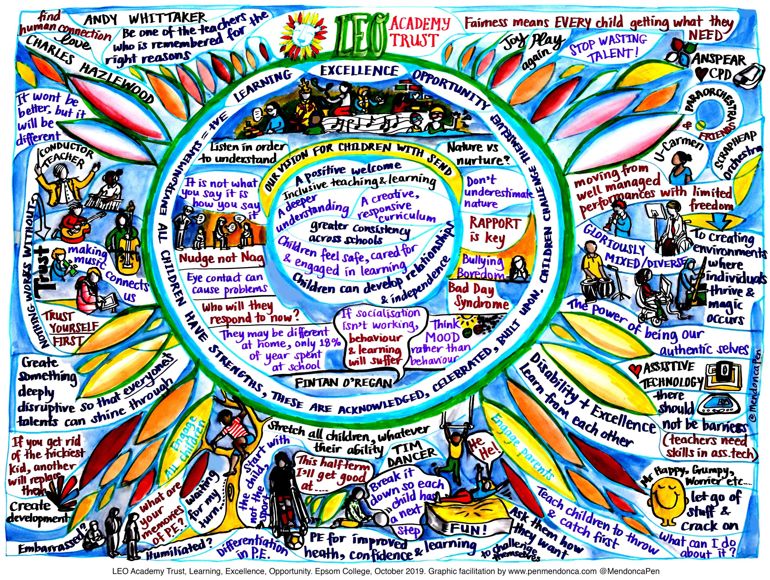 find
human connection
love
CHARLES HAZLEWOOD
ANDY WHITTAKER
Be one of the teachers
who is remembered for the
right reasons
LEO
ACADEMY
TRUST
Fairness means EVERY child getting what they
NEED
Joy Play
again
STOP WASTING
TALENT!
ANSPEAR
CPD
PARAORCHESTRA
& FRIENDS
SCRAPHEAP
Orchestra
U-Carmen
It wont be
better, but it
will be
different
CONDUCTOR
TEACHER
NOTHING WORKS WITHOUT
Trust
making
music connects
us
TRUST
YOURSELF
FIRST
ALL ENVIRONMENTS = +VE LEARNING EXCELLENCE OPPORTUNITY
CHILDREN CHALLENGE THEMSELVES
ALL CHILDREN HAVE STRENGTHS, THESE ARE ACKNOWLEDGED, CELEBRATED, BUILT UPON,
Listen in order
to understand
Nature vs
nurture?
OUR VISION FOR CHILDREN WITH SEND
A positive welcome
Inclusive teaching & learning
A deeper
understanding
A creative,
responsive
curriculum
greater consistency
across schools
Children feel safe, cared for
& engaged in learning
Children can develop relationships
& independence
It is not what
you say it is
how you say
it
Nudge not Nag
Eye contact can
cause problems
Who will they
respond to now?
They may be different
at home, only 18%
of year spent
at school
Don't
underestimate
nature
RAPPORT
is key
Bullying
Boredom
Bad Day
Syndrome
If socialisation
isn't working,
behaviour
& learning
will suffer
Think
MOOD
rather than
behaviour
FINTAN O'REGAN
moving from
well managed
performances with limited
freedom
GLORIOUSLY
MIXED/DIVERSE
To creating
environments
where
individuals
thrive &
magic
occurs
The power of being our
authentic selves
@MendoncaPen
Create
something
deeply
disruptive so that everyones
talents can shine through
If you get rid
of the trickiest
kid, another
will replace
them
Create
development
Engage
ALL children
what are
your
memories
of PE?
Embarrassed?
Humiliated?
Waiting
for my
turn..
Start with
the child,
not the
sport
Differentiation
in P.E.
Stretch all children, whatever
their ability
TIM
DANCER
This half term
I'll get good
at ....
Break it
down so each
child has
a next
step
PE for improved
health, confidence & learning
He
He!
FUN!
Engage parents
Ask them how
they want
to challenge
themselves
Teach children to throw
& catch first
Disability + Excellence
learn from each other
ASSISTIVE
TECHNOLOGY
there
should
not be barriers
(teachers need
skills in ass.tech)
Mr Happy, Grumpy,
Worrier etc...
let go of
stuff &
crack on
What can I do
about it?
LEO Academy Trust, Learning, Excellence, Opportunity. Epsom College, October 2019. Graphic facilitation by www.penmendonca.com @MendoncaPen